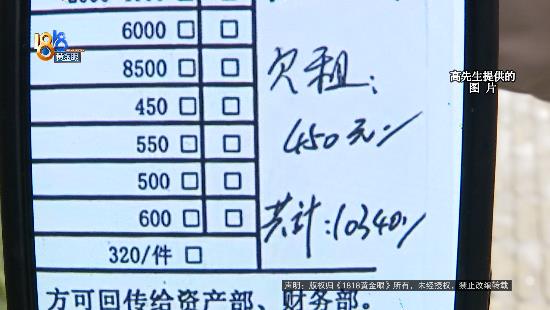 1818
黄金眼
6000 □ □
8500 □ □
450 □ □
550 □ □
500 □ □
600 □ □
320/件 □
欠租:
450元/
共计:10340/
高先生提供的
图 片
声明:版权归《1818黄金眼》所有,未经授权,禁止改编转载
方可回传给资产部、财务部。